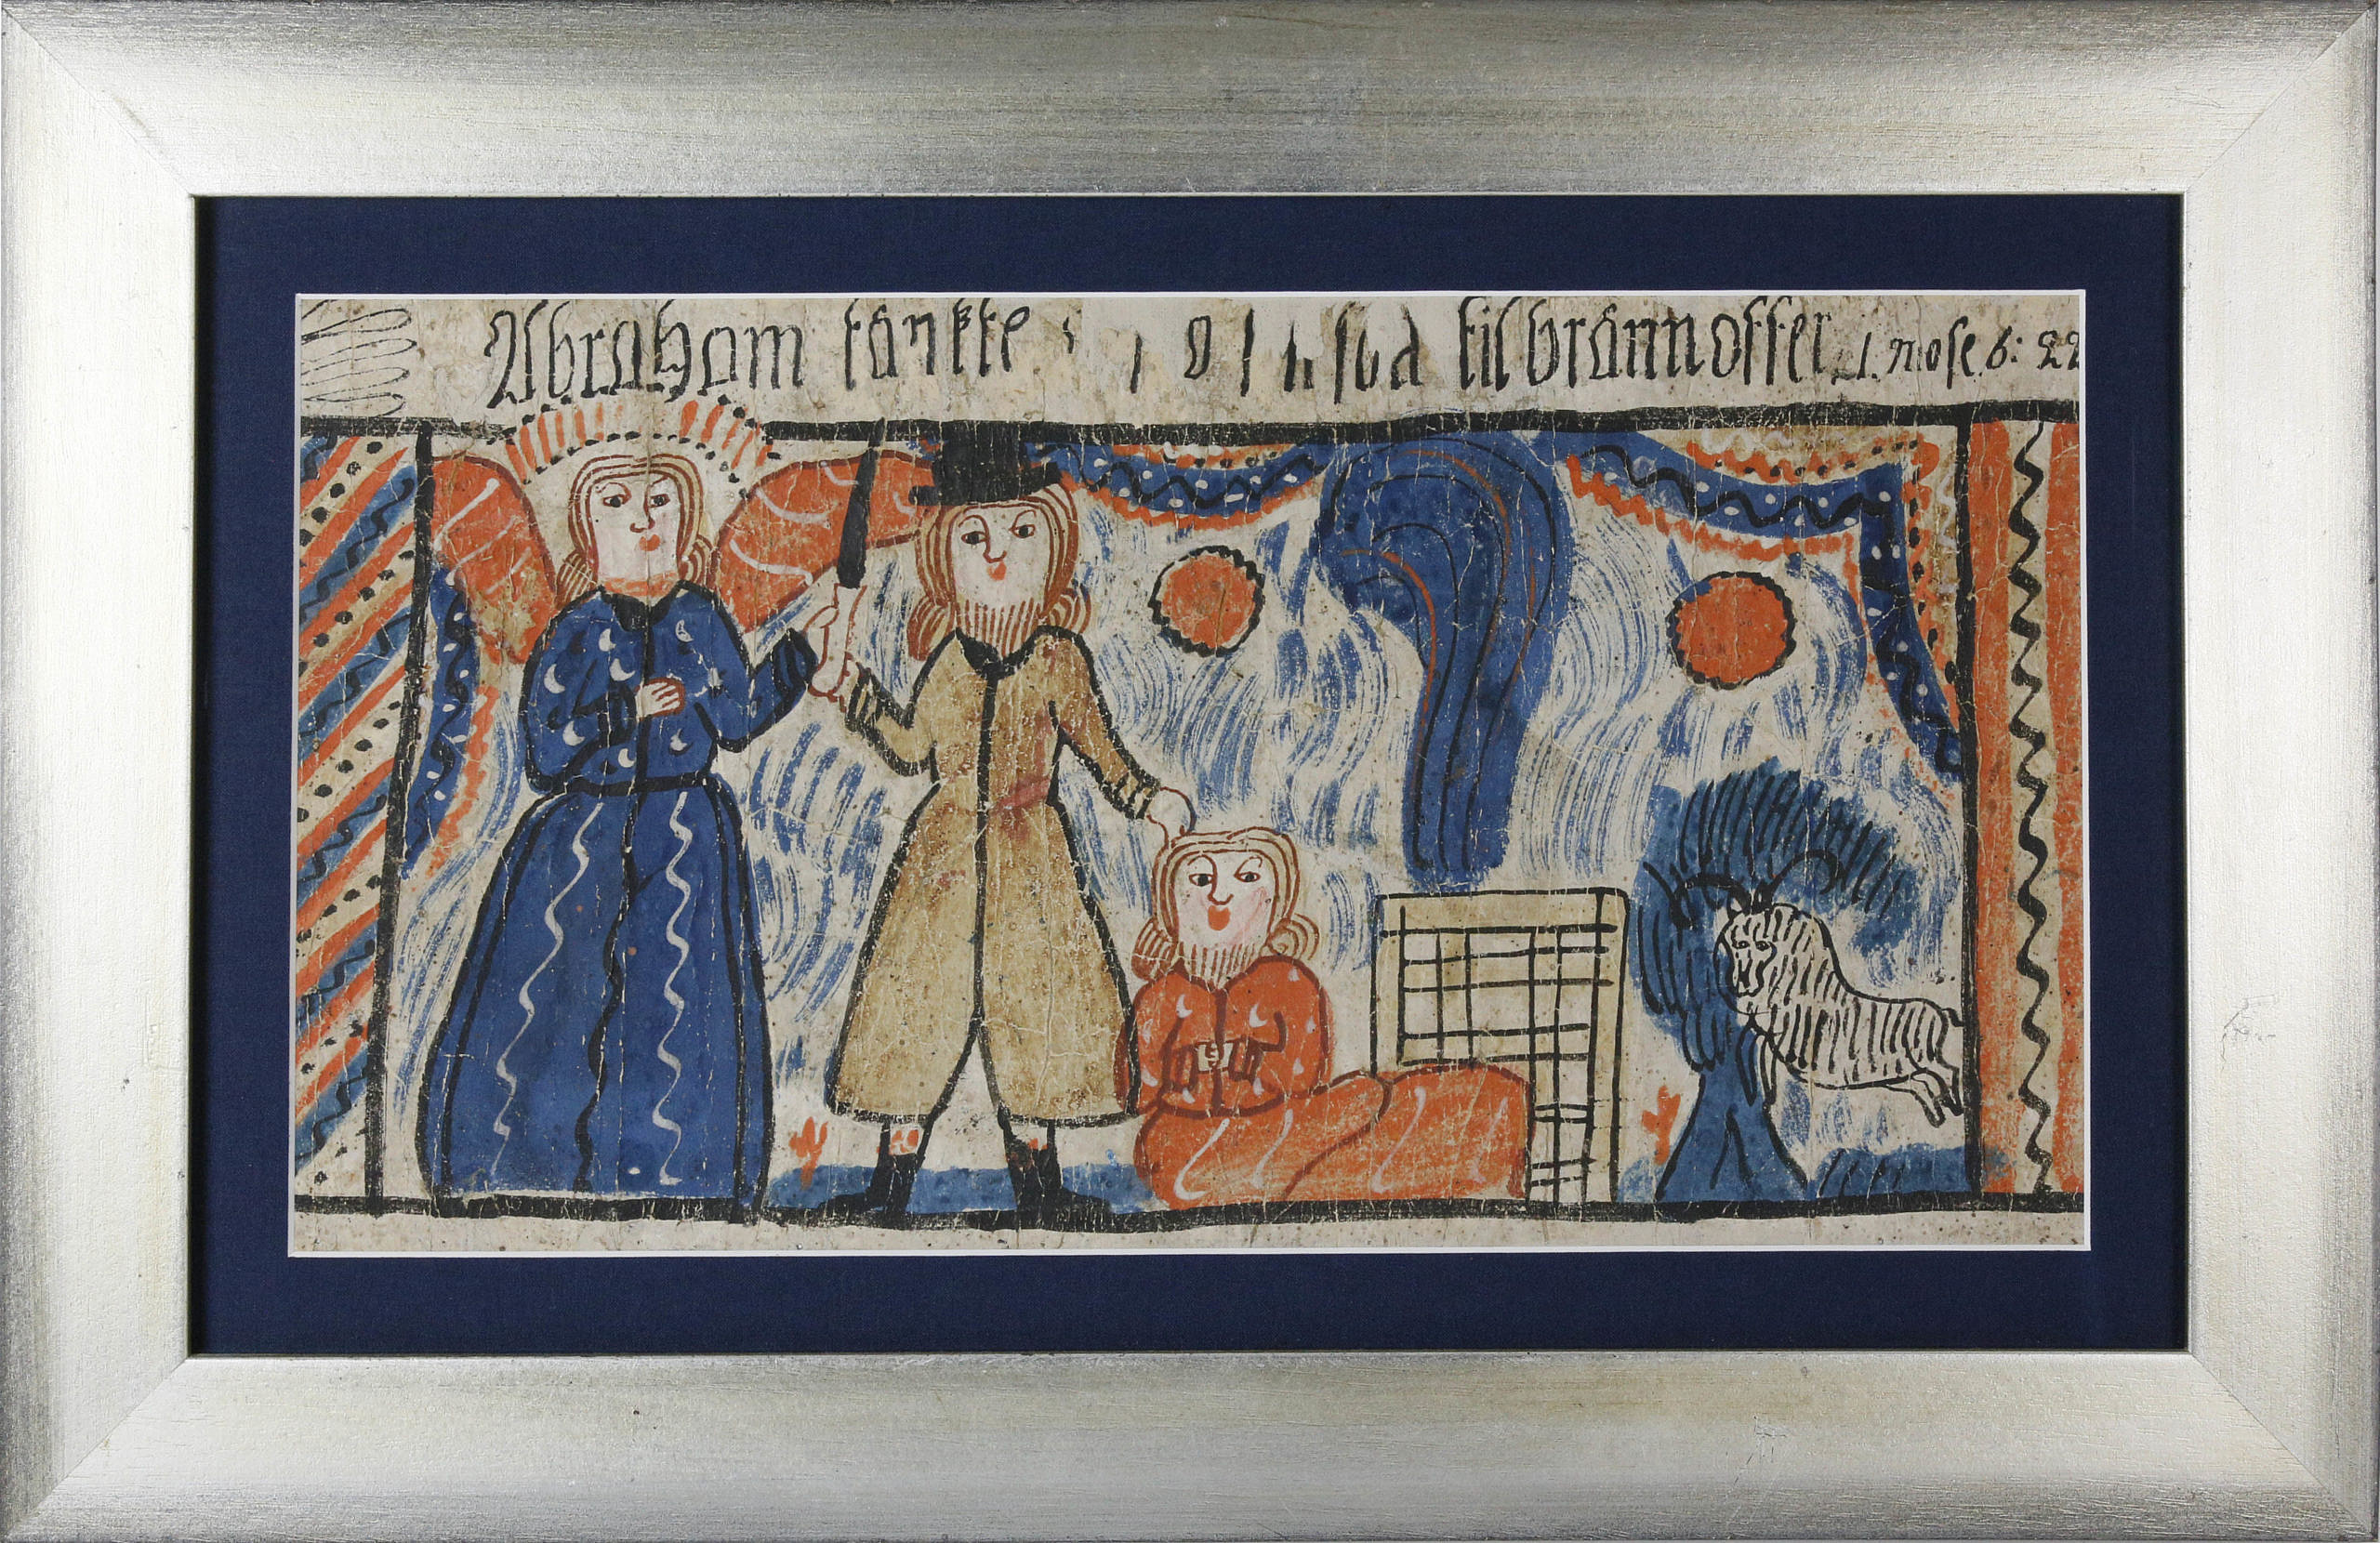 Abraham tänkte til brännoffer 1. Mose 6: 22